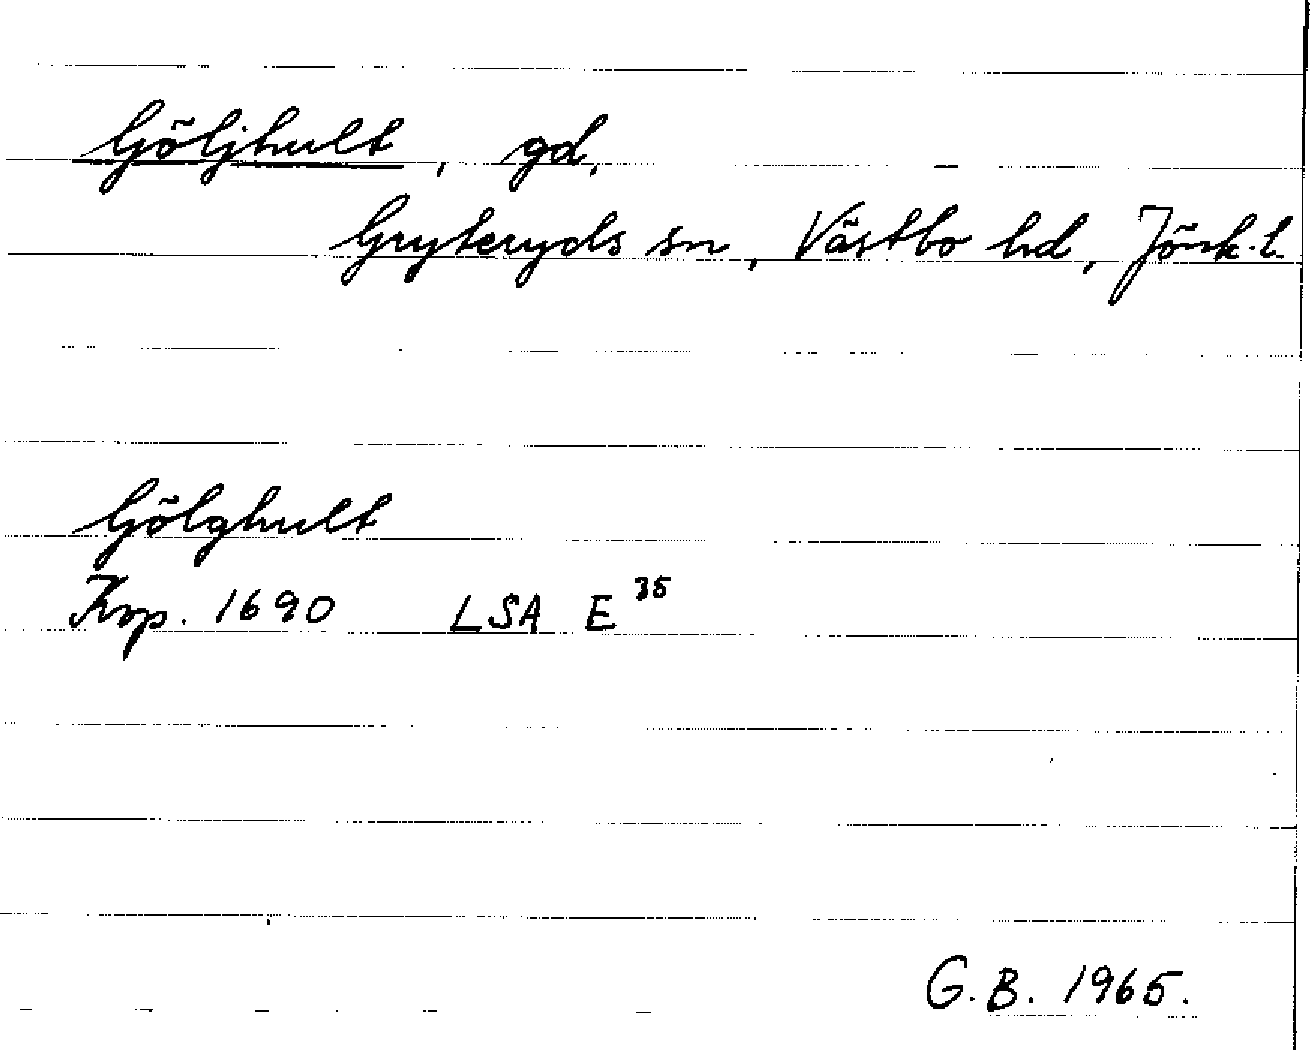 Göljhult, gd,
Gryteryds sn, Västbo hd, Jönk. l.
Gölghult
Krp. 1690 LSA E 35
G.B. 1965.